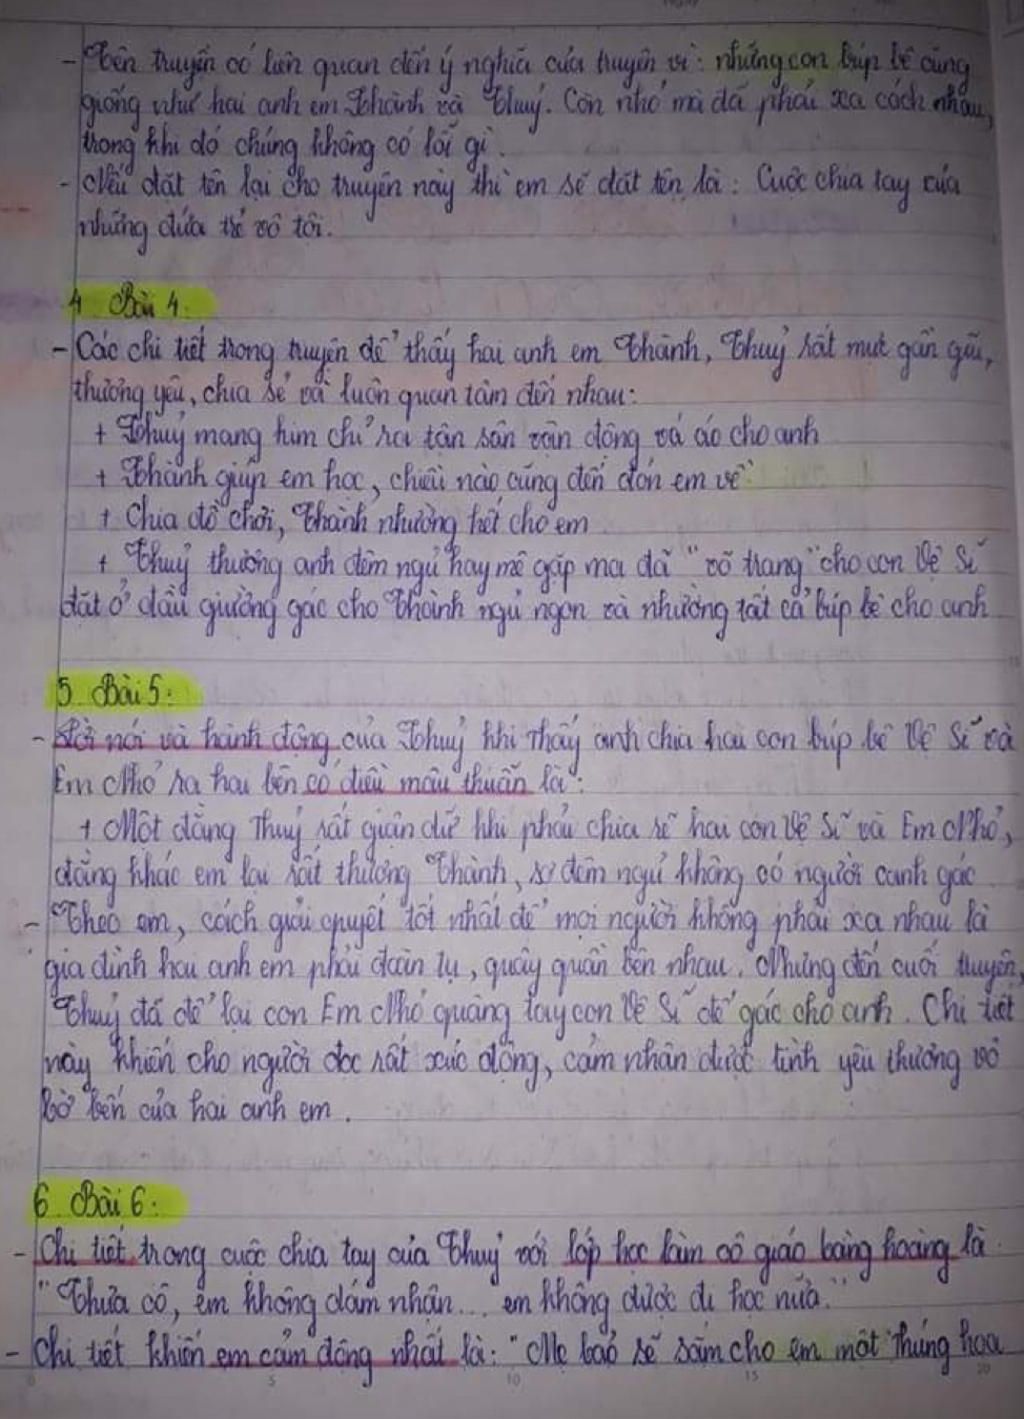 - Tên truyện có liên quan đến ý nghĩa của truyện vì: những con búp bê cũng
giống như hai anh em Thành và Thuỷ. Còn nhỏ mà đã phải xa cách nhau,
trong khi đó chúng không có lỗi gì.
- Nếu đặt tên lại cho truyện này thì em sẽ đặt tên là: Cuộc chia tay của
những đứa trẻ vô tội.
4 Bài 4:
- Các chi tiết trong truyện để thấy hai anh em Thành, Thuỷ rất mực gần gũi,
thương yêu, chia sẻ và luôn quan tâm đến nhau:
+ Thuỷ mang kim chỉ ra tận sân vận động vá áo cho anh
+ Thành giúp em học, chiều nào cũng đến đón em về
+ Chia đồ chơi, Thành nhường hết cho em
+ Thuỷ thương anh đêm ngủ hay mê gặp ma đã "võ trang" cho con Vệ Sĩ
đặt ở đầu giường gác cho Thành ngủ ngon và nhường tất cả búp bê cho anh
5 Bài 5:
- Lời nói và hành động của Thuỷ khi thấy anh chia hai con búp bê Vệ Sĩ và
Em Nhỏ ra hai bên có điều mâu thuẫn là:
+ Một đằng Thuỷ rất giận dữ khi phải chia rẽ hai con Vệ Sĩ và Em Nhỏ,
đằng khác em lại rất thương Thành, sợ đêm ngủ không có người canh gác
- Theo em, cách giải quyết tốt nhất để mọi người không phải xa nhau là
gia đình hai anh em phải đoàn tụ, quây quần bên nhau. Nhưng đến cuối truyện,
Thuỷ đã để lại con Em Nhỏ quàng tay con Vệ Sĩ để gác cho anh. Chi tiết
này khiến cho người đọc rất xúc động, cảm nhận được tình yêu thương vô
bờ bến của hai anh em.
6 Bài 6:
- Chi tiết trong cuộc chia tay của Thuỷ với lớp học làm cô giáo bàng hoàng là
"Thưa cô, em không dám nhận... em không được đi học nữa."
- Chi tiết khiến em cảm động nhất là: "Mẹ bảo sẽ sắm cho em một thúng hoa